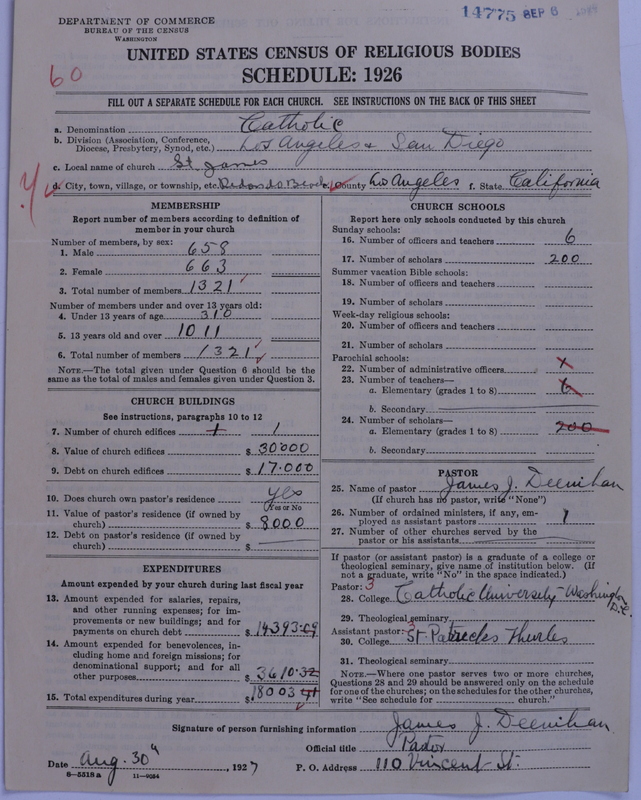 DEPARTMENT OF COMMERCE
BUREAU OF THE CENSUS
WASHINGTON
14775 SEP 6
60
UNITED STATES CENSUS OF RELIGIOUS BODIES
SCHEDULE: 1926
FILL OUT A SEPARATE SCHEDULE FOR EACH CHURCH. SEE INSTRUCTIONS ON THE BACK OF THIS SHEET
a. Denomination Catholic
b. Division (Association, Conference, Diocese, Presbytery, Synod, etc.) Los Angeles & San Diego
c. Local name of church St. James
d. City, town, village, or township, etc. Redondo Beach e. County Los Angeles f. State California
MEMBERSHIP
Report number of members according to definition of
member in your church
Number of members, by sex:
1. Male 658
2. Female 663
3. Total number of members 1321
Number of members under and over 13 years old:
4. Under 13 years of age 310
5. 13 years old and over 1011
6. Total number of members 1321
NOTE.—The total given under Question 6 should be the
same as the total of males and females given under Question 3.
CHURCH BUILDINGS
See instructions, paragraphs 10 to 12
7. Number of church edifices 1 1
8. Value of church edifices $ 30000
9. Debt on church edifices $ 17.000
10. Does church own pastor's residence yes
(Yes or No)
11. Value of pastor's residence (if owned by
church) $ 8000
12. Debt on pastor's residence (if owned by
church) $
EXPENDITURES
Amount expended by your church during last fiscal year
13. Amount expended for salaries, repairs,
and other running expenses; for im-
provements or new buildings; and for
payments on church debt $ 14393.09
14. Amount expended for benevolences, in-
cluding home and foreign missions; for
denominational support; and for all
other purposes $ 3610.32
15. Total expenditures during year $ 18003 41
CHURCH SCHOOLS
Report here only schools conducted by this church
Sunday schools:
16. Number of officers and teachers 6
17. Number of scholars 200
Summer vacation Bible schools:
18. Number of officers and teachers
19. Number of scholars
Week-day religious schools:
20. Number of officers and teachers
21. Number of scholars
Parochial schools:
22. Number of administrative officers
23. Number of teachers—
a. Elementary (grades 1 to 8) 6
b. Secondary
24. Number of scholars—
a. Elementary (grades 1 to 8) 200
b. Secondary
PASTOR
25. Name of pastor James J. Deenihan
(If church has no pastor, write "None")
26. Number of ordained ministers, if any, em-
ployed as assistant pastors 1
27. Number of other churches served by the
pastor or his assistants
If pastor (or assistant pastor) is a graduate of a college or
theological seminary, give name of institution below. (If
not a graduate, write "No" in the space indicated.)
Pastor: 3
28. College Catholic University - Washington, D.C.
29. Theological seminary
Assistant pastor: 3
30. College St. Patricks Thurles
31. Theological seminary
NOTE.—Where one pastor serves two or more churches,
Questions 28 and 29 should be answered only on the schedule
for one of the churches; on the schedules for the other churches,
write "See schedule for church."
Signature of person furnishing information James J. Deenihan
Official title Pastor
Date Aug. 30th, 1927 P. O. Address 110 Vincent St.
8-5518a 11-9054